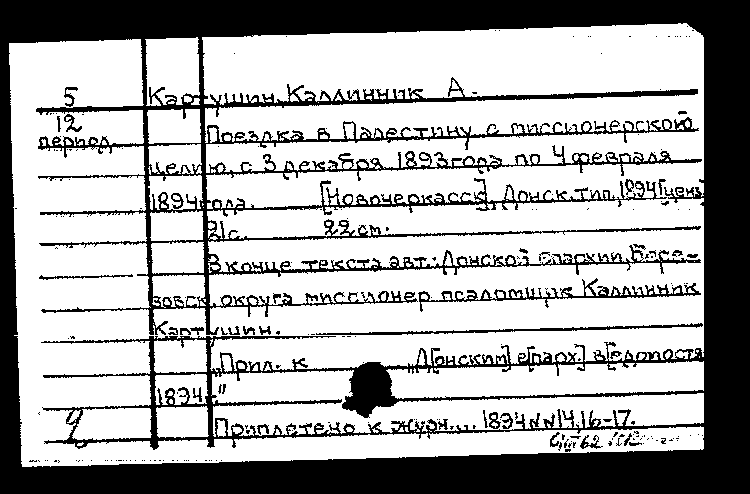 5 Картушин, Каллинник А.
12
период. Поездка в Палестину с миссионерской
целию, с 3 декабря 1893 года по 4 февраля
1894 года. [Новочеркасск], Донск. тип., 1894 [ценз]
21 с. 22 cm.
В конце текста авт.: Донской епархии, Бере-
зовск. округа миссионер псаломщик Каллинник
Картушин.
„Прил. к „Д[онским] е[парх.] в[едомостя
1894 г."
Приплетено к журн... 1894 NN 14, 16-17.
62